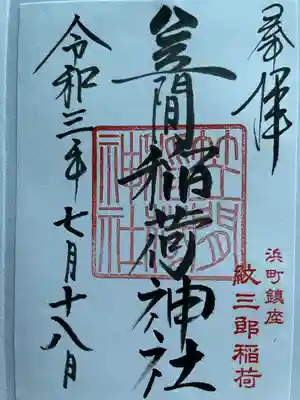 奉拝
浜町鎮座
紋三郎稲荷
笠間稲荷神社
笠間稲荷神社
令和三年七月十八日